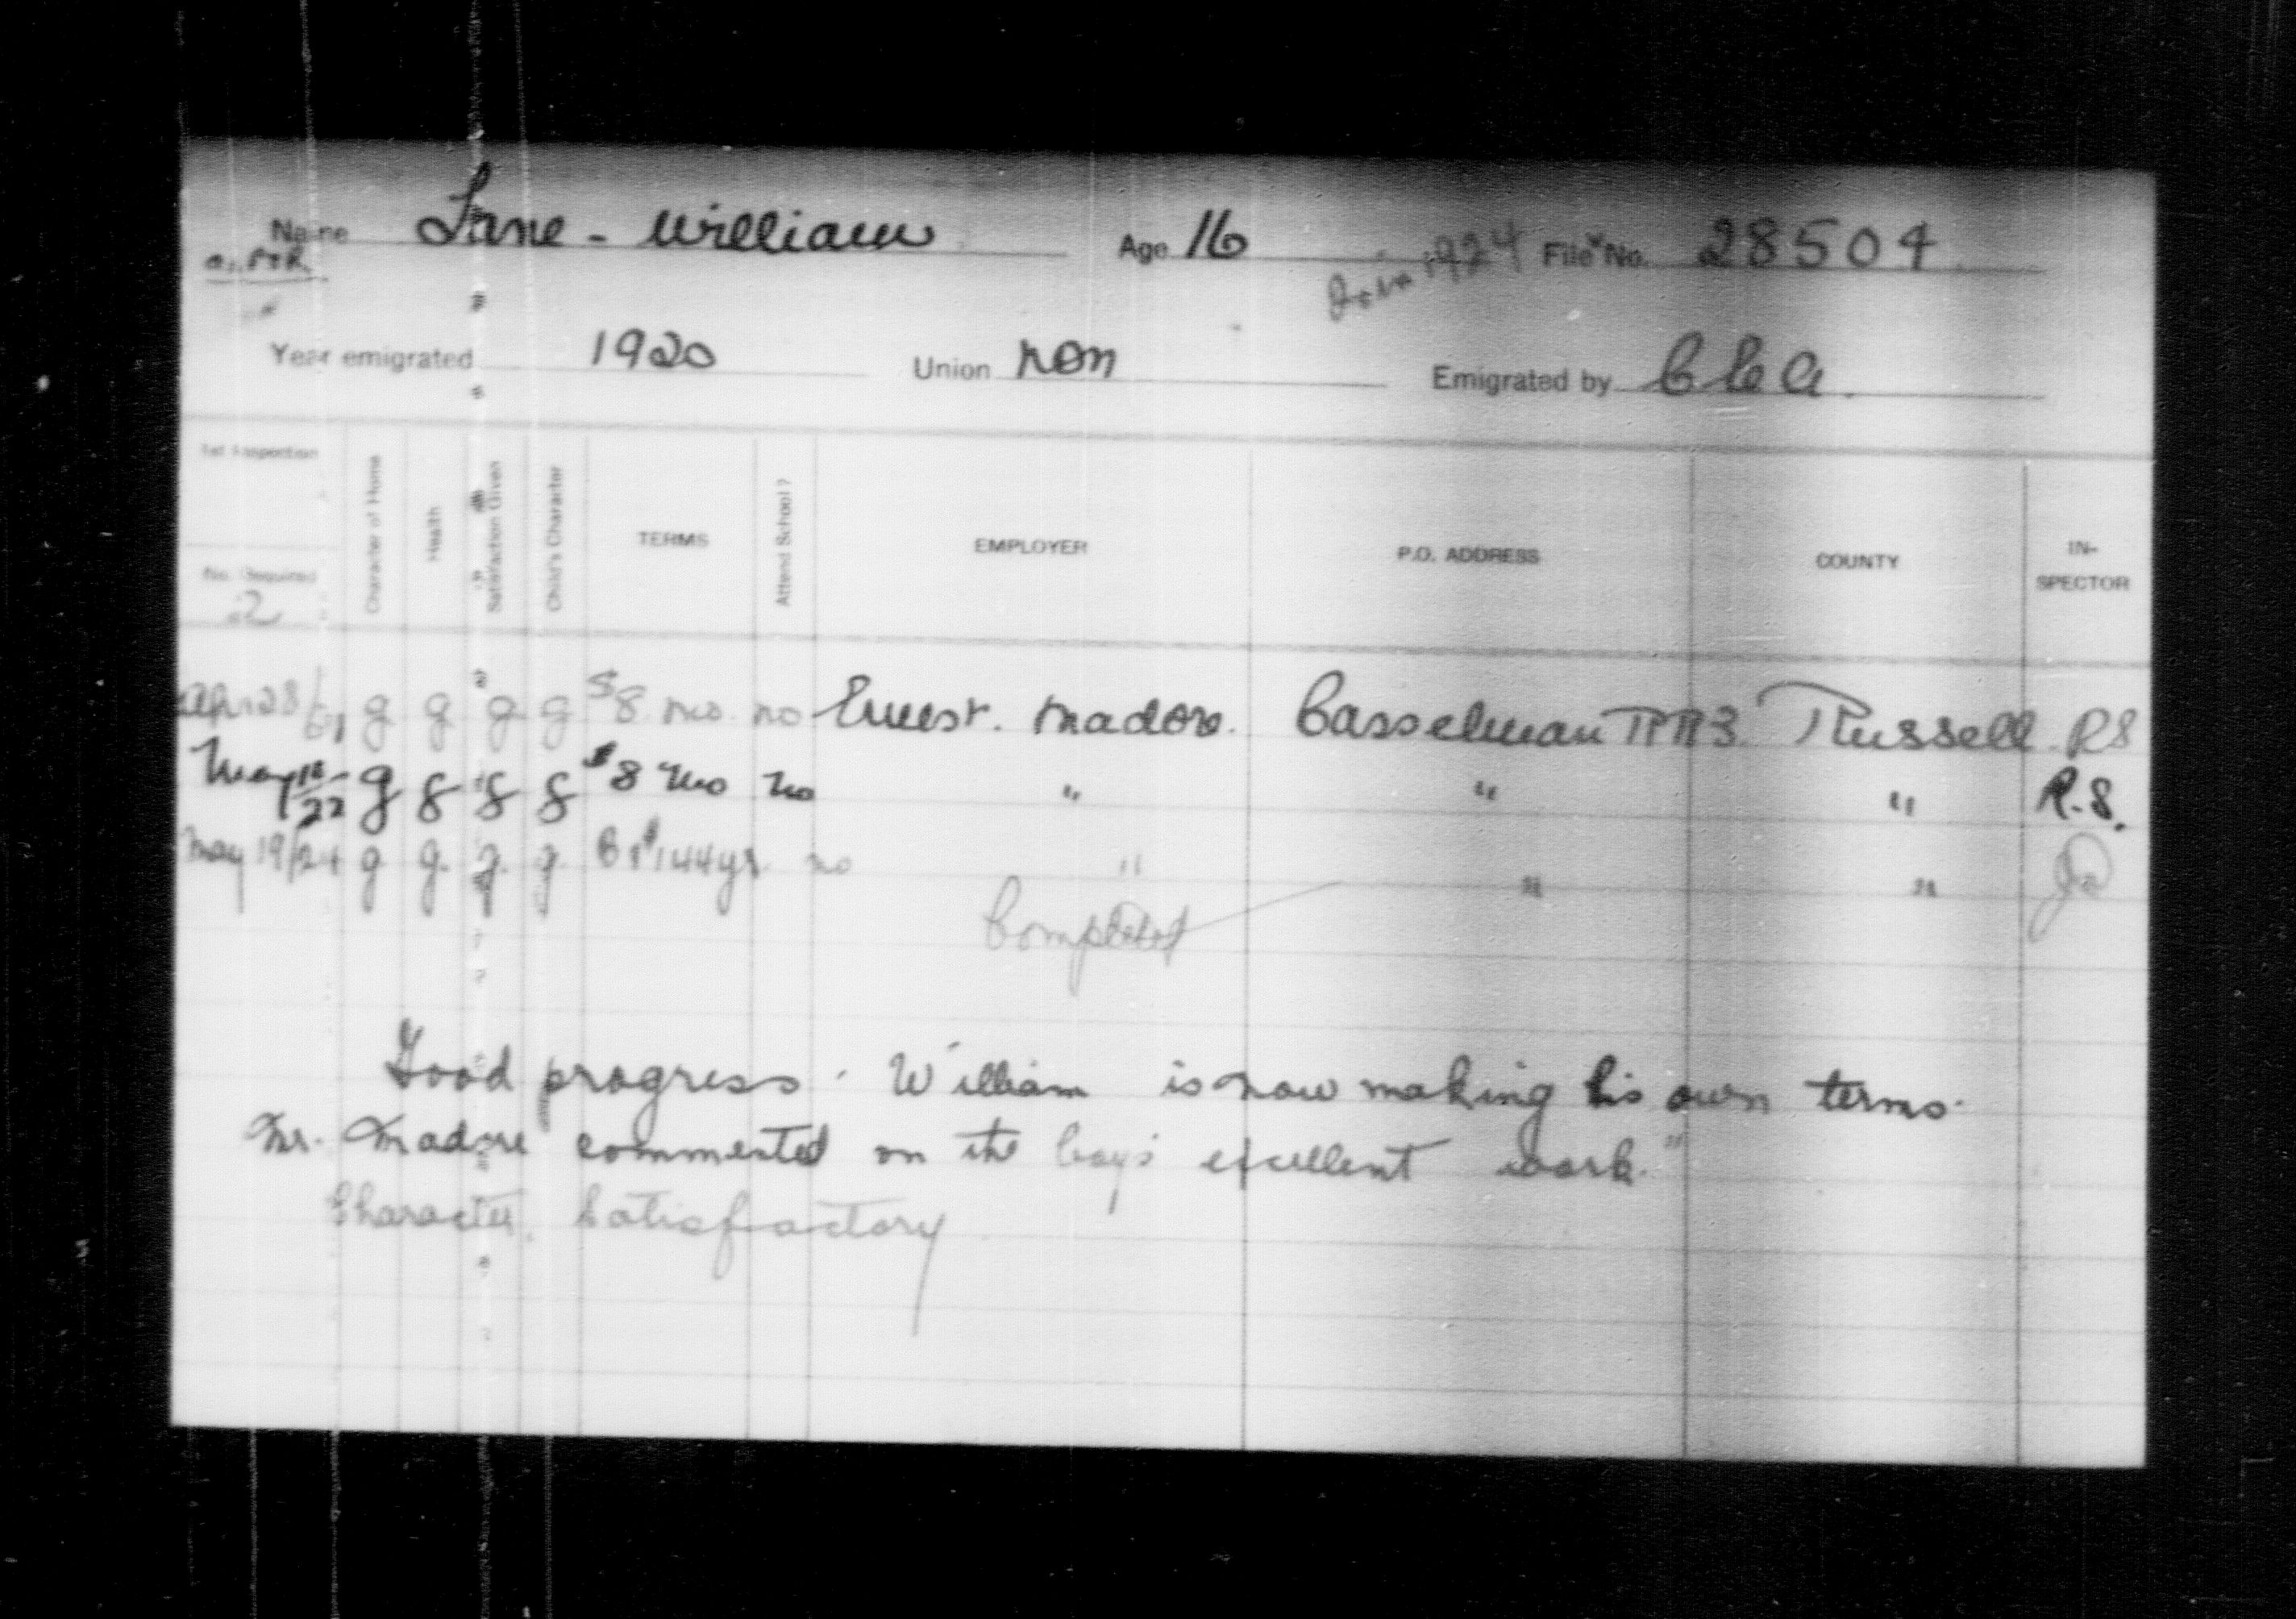 Name Lane - William Age 16 1924 File No. 28504
Year emigrated 1920 Union non Emigrated by C C A.
1st Inspection
No. Required 2
Character of Home
Health
Satisfaction Given
Child's Character
TERMS
Attend School?
EMPLOYER
P.O. ADDRESS
COUNTY
IN-
SPECTOR
Apr 28/21 g g g g $8 mo. no Ernest. Madore. Casselman RR3. Russell. RS
May 18/22 g g g g $8 mo no " " " R.S.
May 19/24 g g. g. g. $144 yr no " " "
Completed
Good progress. William is now making his own terms.
Mr. Madore commented on the boy's excellent work."
Character. Satisfactory